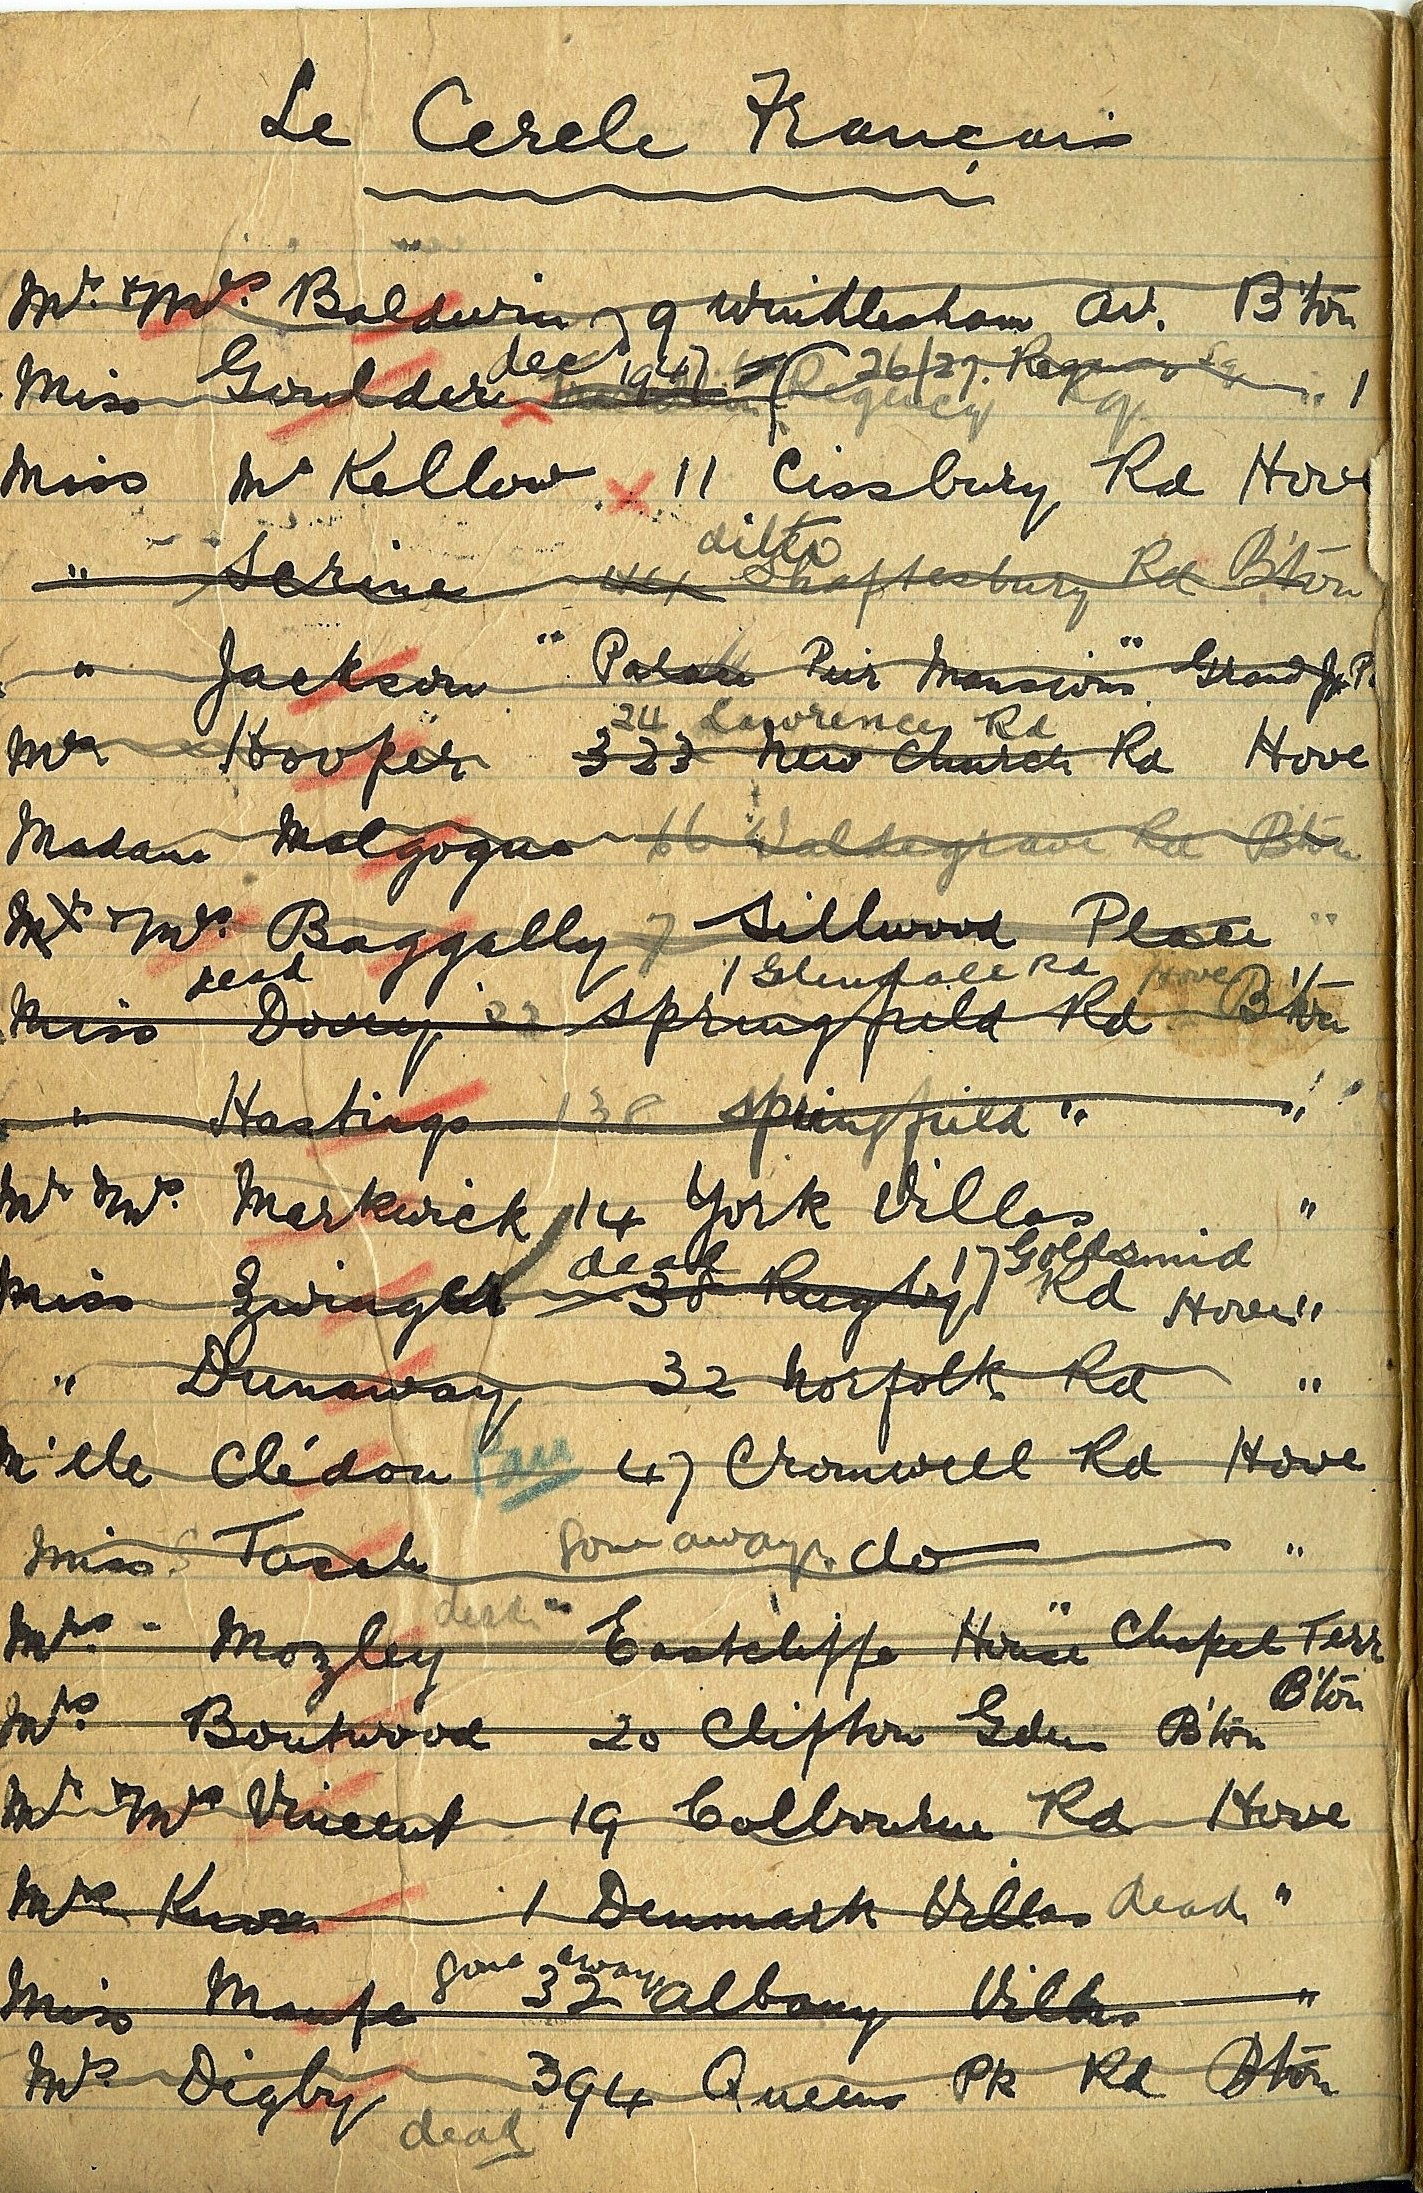 Le Cercle Français
Mr. & Mrs. Baldwin 79 Windlesham Av. B'ton
dec 1947 26/27. Regency Sq.
Miss Goulder Regency Sq. " 1
Miss McKellow x 11 Cissbury Rd Hove
ditto
" Scrine 44 Shaftesbury Rd B'ton
" Jackson "Palace Pier Mansions" Grand Jn P
24 Lawrence Rd
Mrs Hooper 323 New Church Rd Hove
Madame 66 Valdegrave Rd B'ton
Mr & Mrs. Baggally 7 Sillwood Place "
dead 1 Glendale Rd Hove
Miss Dovey 82 Springfield Rd B'ton
" Hastings 138 Springfield " "
Mr Mrs. Markwick 14 York Villas "
dead 17 Goldsmid
Miss 38 Rugby Rd Hove "
" Dunaway 32 Norfolk Rd "
M'lle Clédon 47 Cromwell Rd Hove
Miss Tasch gone away. do "
dead
Mrs. - Mozley "Eastcliffe House" Chapel Terr
B'ton
Mrs. Boutwood 20 Clifton Gdns B'ton
Mr & Mrs Vincent 19 Colbourne Rd Hove
Mrs Knox 1 Denmark Villas dead "
gone away
Miss Maufe 32 Albany Villas "
Mrs. Digby 394 Queens Pk Rd B'ton
dead